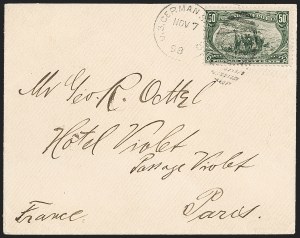 U.S. GERMAN
NOV 7
98
50 50
Mr Geo. R. Oettel
Hotel Violet
Passage Violet
Paris.
France